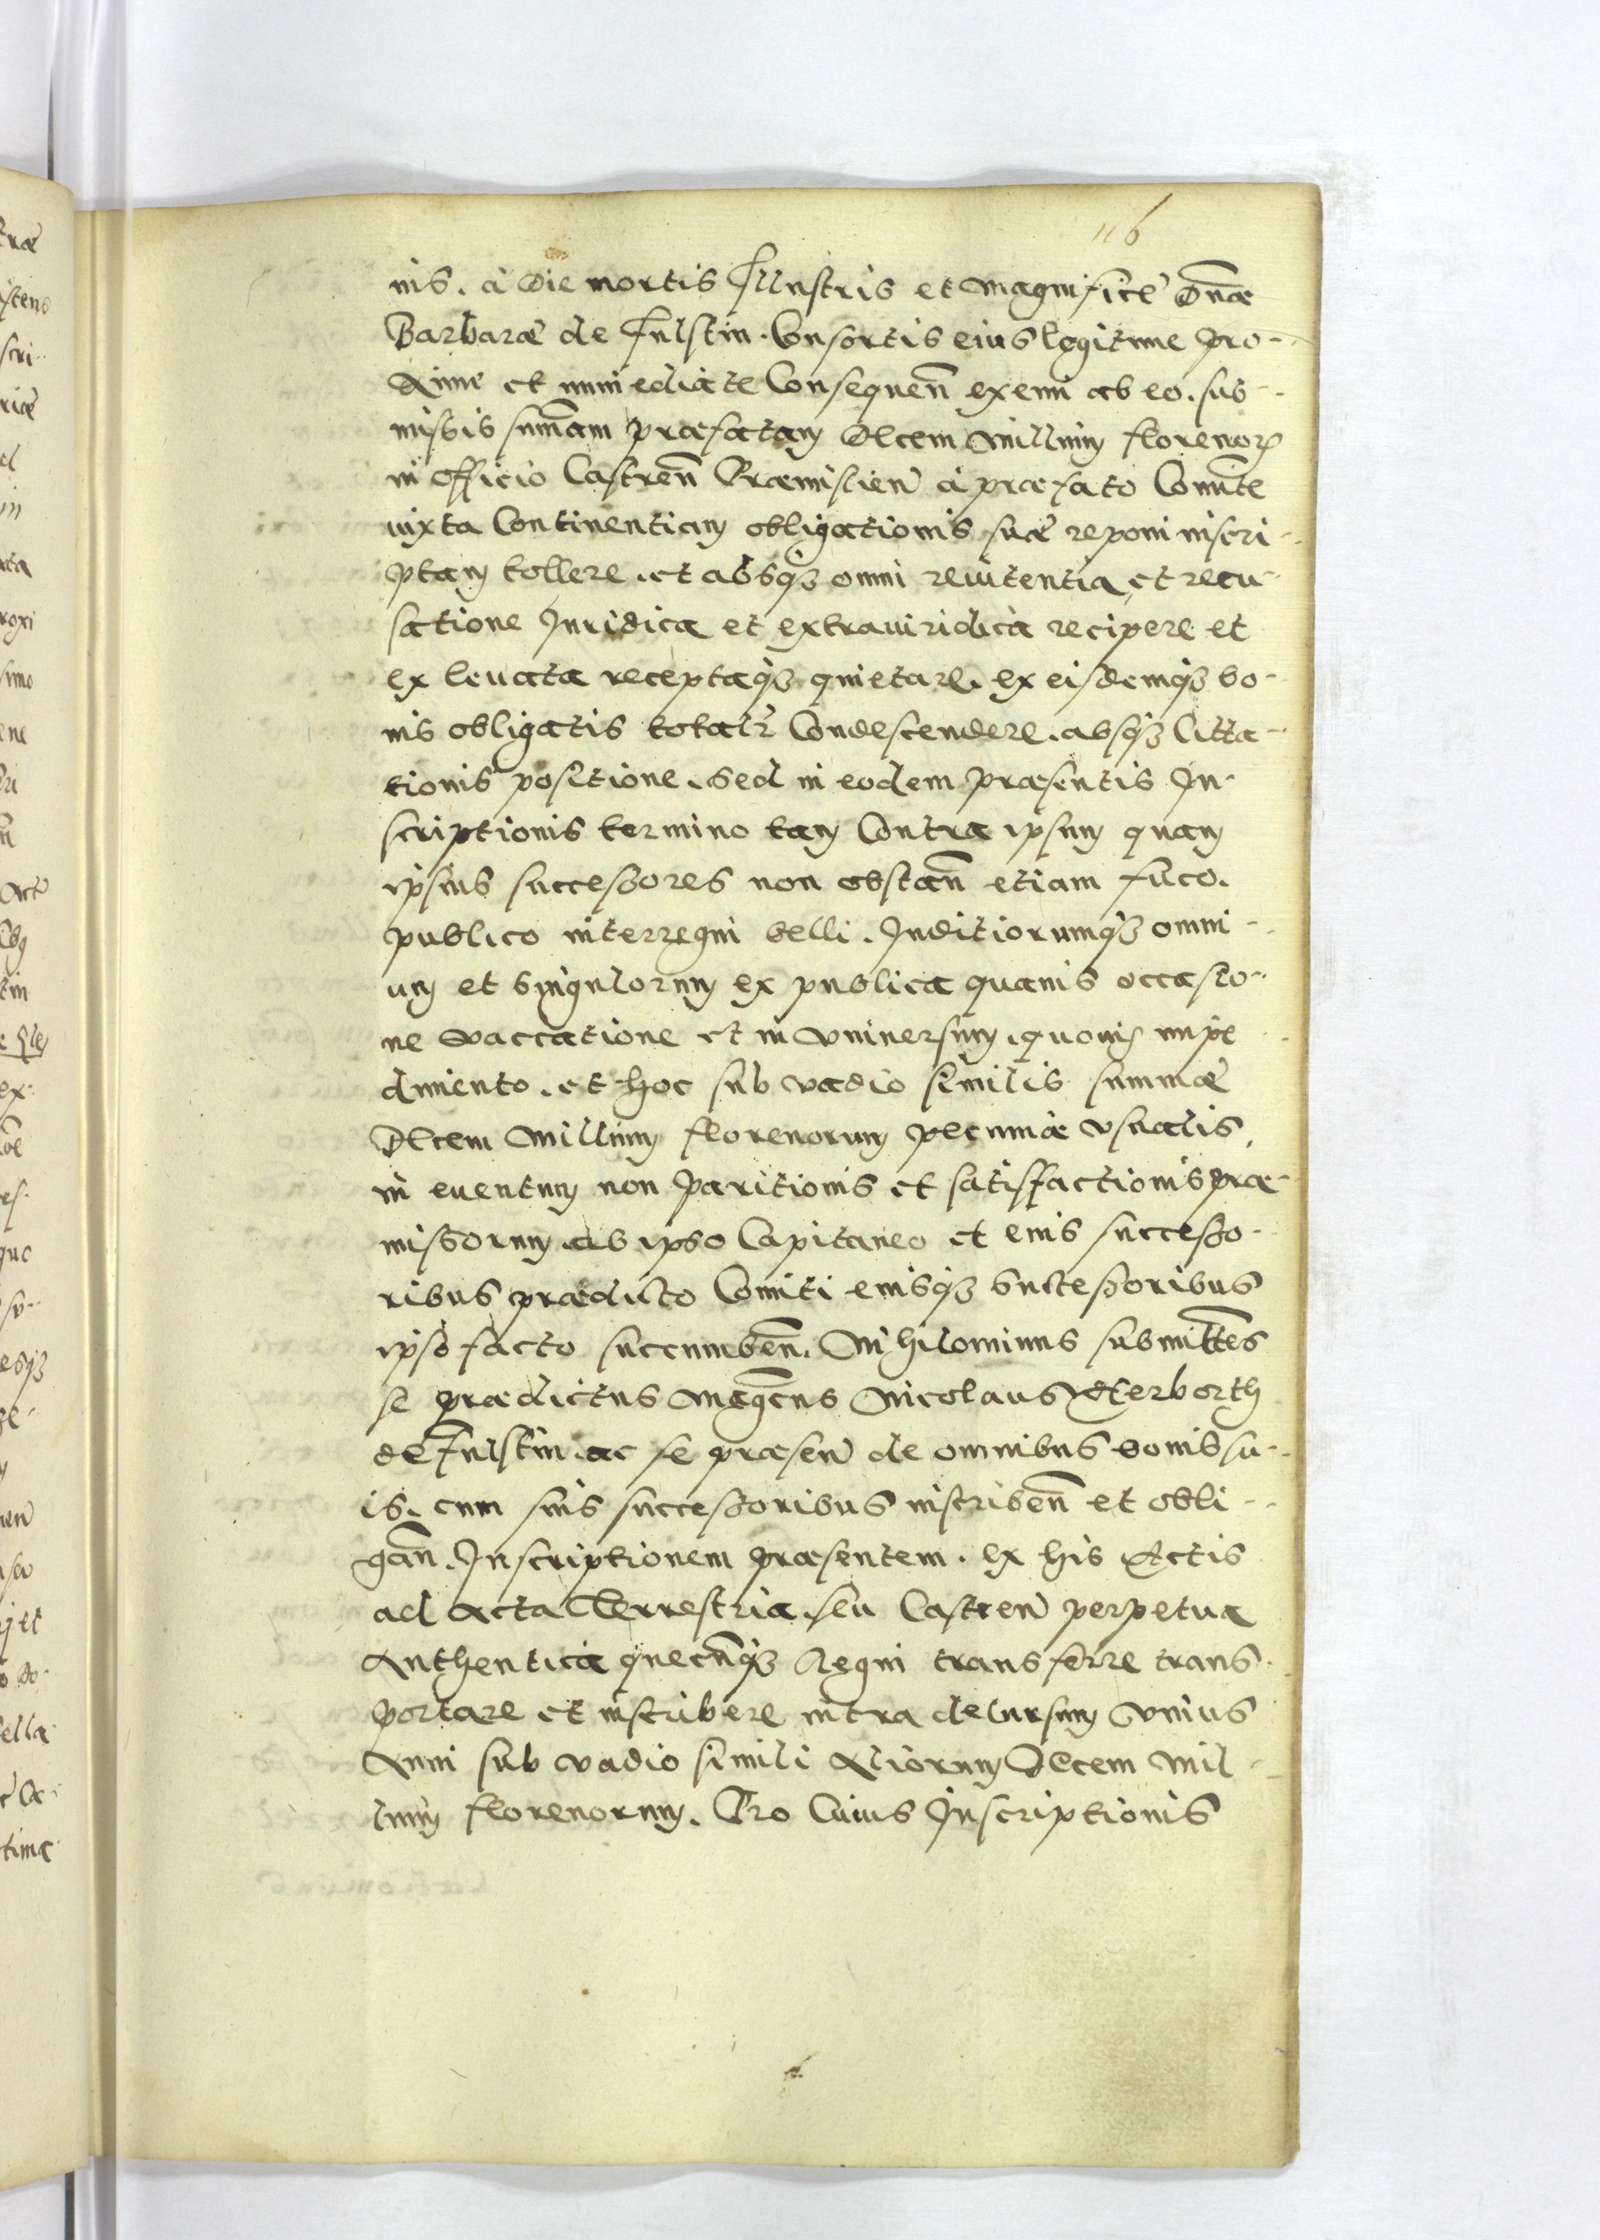 116
nis. à Die mortis Illustris et Magnificè Dn̄æ
Barbaræ de Fulstin. Consortis eius legitime pro-
xime et immediate Consequen̄ exemi ab eo. sub-
missis sum̄am præfatam Decem Millium florenor
in officio Castren̄ Præmislien̄ à præfato Comite
iuxta Continentiam obligationis suæ reponi inscri-
ptam tollere. et absq3 omni renitentia et recu-
satione Juridica et extraiuridica recipere et
ex leuata receptaq3 quietare. ex eisdemq3 bo-
nis obligatis totalr Condescendere. absq3 Citta-
tionis positione. sed in eodem præsentis In-
scriptionis termino tam Contra ipsum quam
ipsius successores non obstan̄ etiam
publico interregni belli. Juditiorumq3 omni-
um et singulorum ex publica quauis occasio-
ne vaccatione et in vniuersum. quouis impe
dimento. et hoc sub vadio similis summæ
Decem Millium florenorum pecuniæ vsualis,
in euentum non paritionis et satisfactionis præ-
missorum ab ipso Capitaneo et eius successo-
ribus prædicto Comiti eiusq3 successoribus
ipso facto succumben̄. Nihilominus submittēs
se prædictus Mag̅cus Nicolaus Herborth
de Fulstin. ac se præsen̄ de omnibus bonis su-
is. cum suis successoribus inscriben̄ et obli-
gan̄. Inscriptionem præsentem. ex his Actis
ad acta Terrestria. seu Castren̄ perpetua
Authentica quecūq3 Regni transferre trans-
portare et inscribere intra decursum vnius
Anni sub vadio simili Aliorum Decem Mil-
lium florenorum. Pro Cuius Inscriptionis